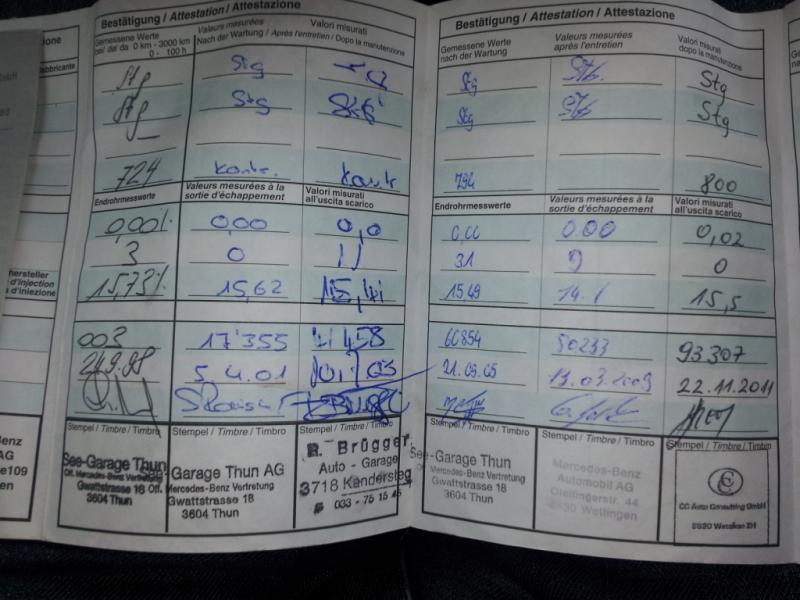 Bestätigung / Attestation / Attestazione
Gemessene Werte
bei/ de/ da 0 km - 3000 km
0 - 100 h
Valeurs mesurées
Valori misurati
Nach der Wartung / Après l'entretien / Dopo la manutenzione
Stg
Stg
Stg
Stg
724
Endrohrmesswerte
Valeurs mesurées à la
sortie d'échappement
Valori misurati
all'uscita scarico
0,00%
0,00
0,0
3
0
11
15,73%
15,62
15,41
003
17'355
24.9.98
5.4.01
Stempel / Timbre / Timbro
Stempel / Timbre / Timbro
Stempel / Timbre / Timbro
See-Garage Thun
Mercedes-Benz Vertretung
Gwattstrasse 18
3604 Thun
Garage Thun AG
Mercedes-Benz Vertretung
Gwattstrasse 18
3604 Thun
R. Brügger
Auto - Garage
3718 Kandersteg
033 - 75 15 45
Bestätigung / Attestation / Attestazione
Gemessene Werte
nach der Wartung
Valeurs mesurées
après l'entretien
Valori misurati
dopo la manutenzione
Stg
Stg
Stg
Stg
794
800
Endrohrmesswerte
Valeurs mesurées à la
sortie d'échappement
Valori misurati
all'uscita scarico
0,00
0.00
0,02
31
9
0
15,49
14.1
15,5
66854
80233
93'307
21.09.05
13.03.2009
22.11.2011
Stempel / Timbre / Timbro
Stempel / Timbre / Timbro
Stempel / Timbre / Timbro
See-Garage Thun
Mercedes-Benz Vertretung
Gwattstrasse 18
3604 Thun
Mercedes-Benz
Automobil AG
8430 Wettingen
CC Auto Consulting GmbH
8620 Wetzikon ZH